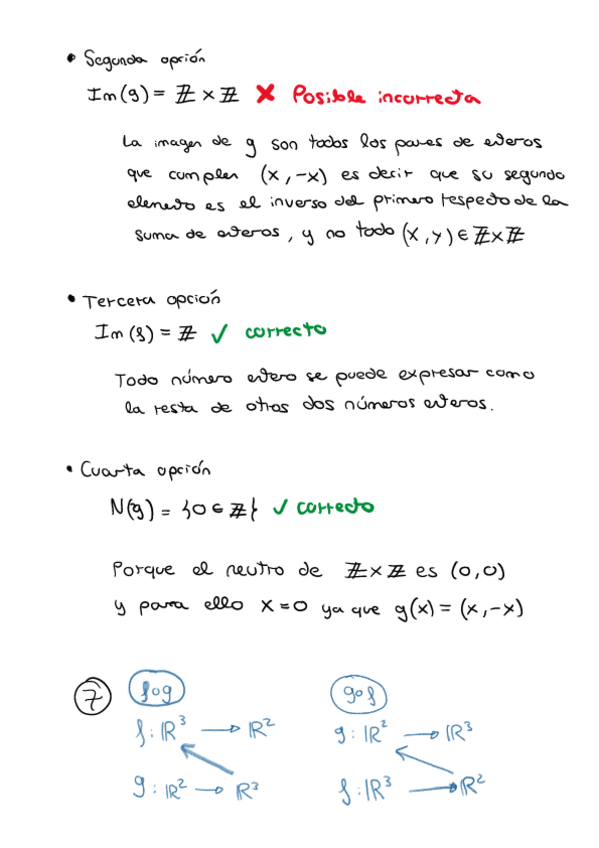 • Segunda opción
Im(g) = ℤ × ℤ ✗ Posible incorrecta
La imagen de g son todos los pares de enteros
que cumplen (x, -x) es decir que su segundo
elemento es el inverso del primero respecto de la
suma de enteros, y no todo (x, y) ∈ ℤ×ℤ
• Tercera opción
Im(f) = ℤ ✓ correcto
Todo número entero se puede expresar como
la resta de otros dos números enteros.
• Cuarta opción
N(g) = {0 ∈ ℤ} ✓ correcto
Porque el neutro de ℤ×ℤ es (0,0)
y para ello x=0 ya que g(x) = (x, -x)
7 f∘g g∘f
f: ℝ³ → ℝ² g: ℝ² → ℝ³
g: ℝ² → ℝ³ f: ℝ³ → ℝ²